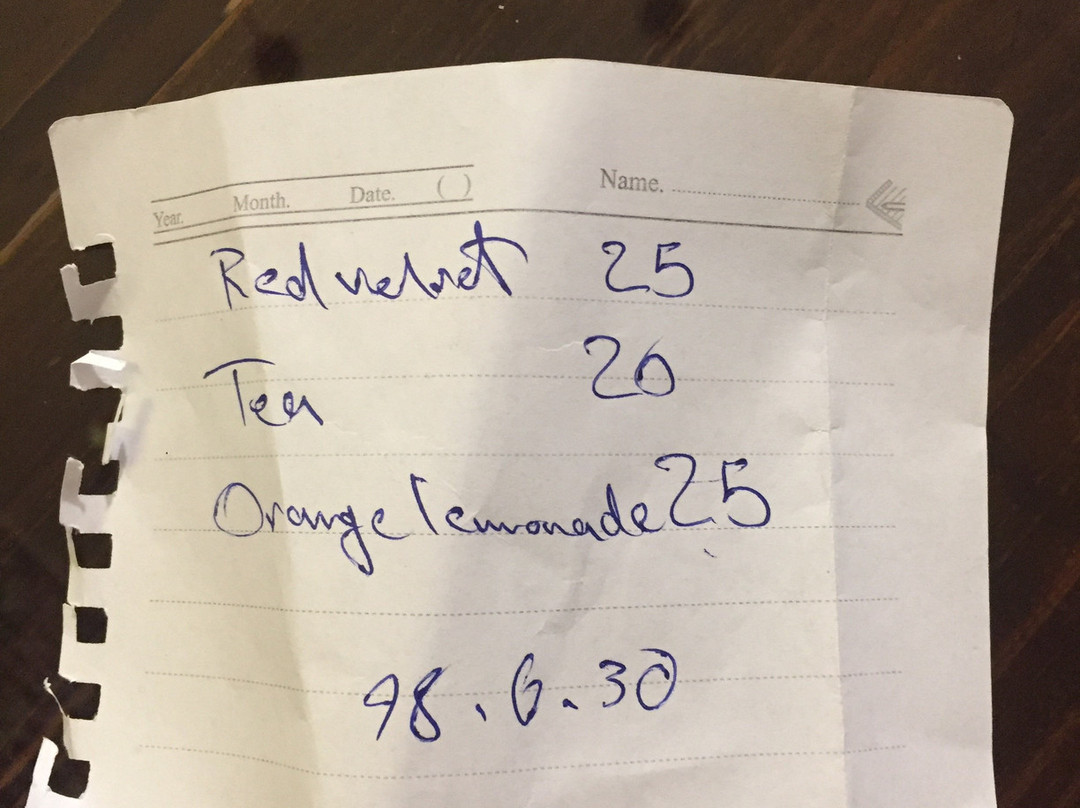 Year. Month. Date. ( ) Name.
Red velvet 25
Tea 20
Orange lemonade 25
98.6.30